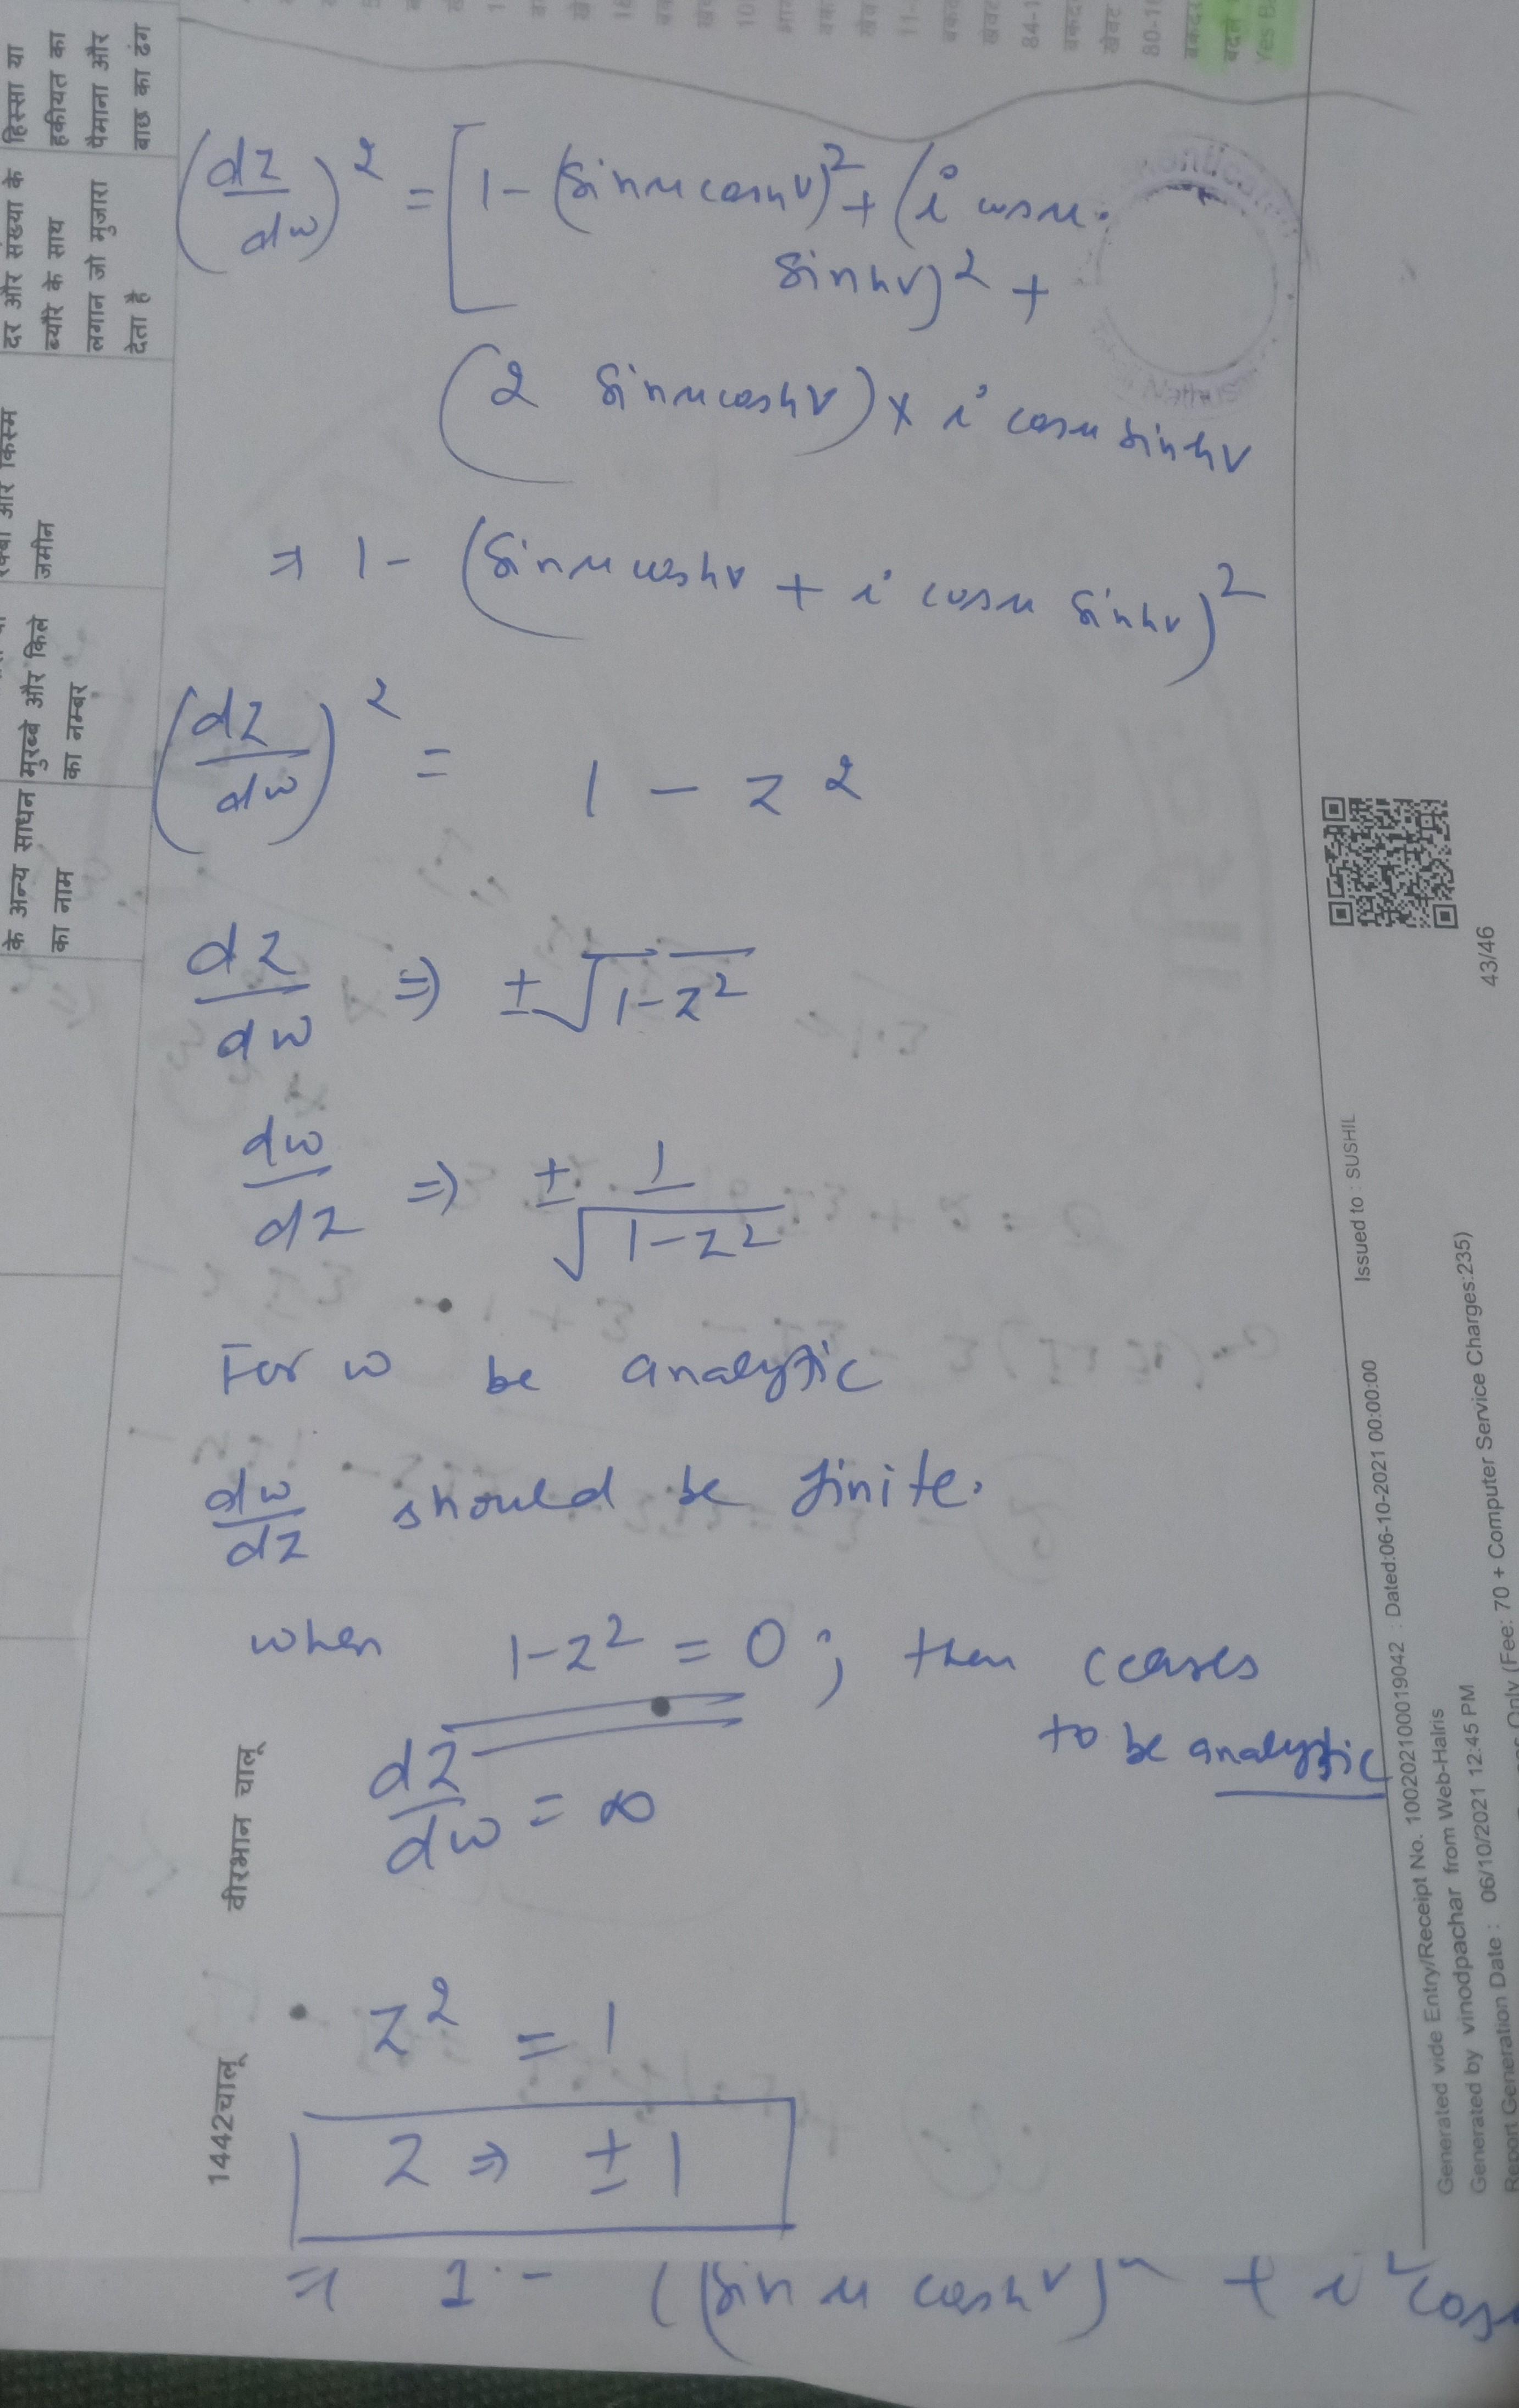 (dz/dw)² = [1 - (sinu coshv)² + (i cosu.
sinhv)² +
(2 sinu coshv) × i cosu sinhv
⇒ 1 - (sinu coshv + i cosu sinhv)²
(dz/dw)² = 1 - z²
dz/dw ⇒ ± √1-z²
dw/dz ⇒ ± 1/√1-z²
For w be analytic
dw/dz should be finite.
when 1-z² = 0 ; then ceases
to be analytic
dz/dw = ∞
z² = 1
z ⇒ ± 1
⇒ 1 - ((sin u coshv)² + i² cos
हिस्सा या
हकीयत का
पैमाना और
बाछ का ढंग
दर और संख्या के
ब्यौरे के साथ
लगान जो मुजारा
देता है
रकबा और किस्म
जमीन
मुरब्बे और किले
का नम्बर
के अन्य साधन
का नाम
वीरभान चालू
1442चालू
84-1
80-1
Yes B
43/46
Issued to : SUSHIL
Generated vide Entry/Receipt No. 100202100019042 : Dated:06-10-2021 00:00:00
Generated by vinodpachar from Web-Halris
Report Generation Date : 06/10/2021 12:45 PM
Only (Fee: 70 + Computer Service Charges:235)